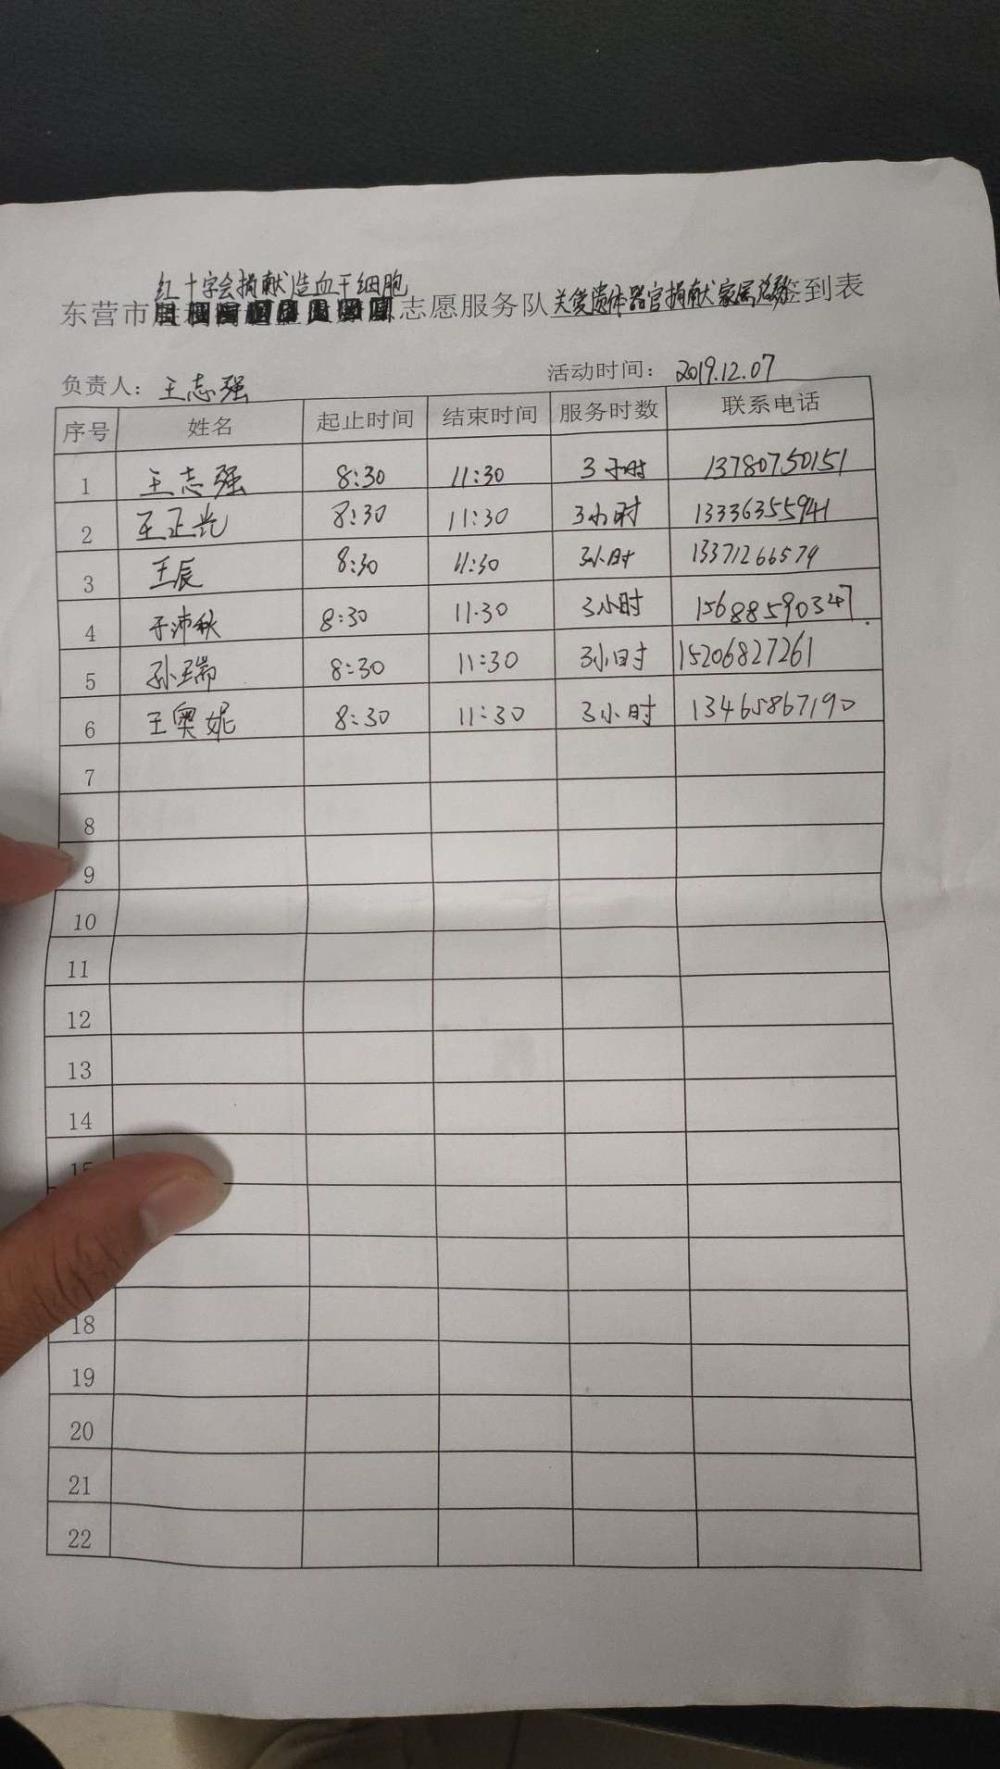 红十字会捐献造血干细胞
东营市志愿服务队关爱遗体器官捐献家属活动签到表
负责人：王志强 活动时间：2019.12.07
序号 姓名 起止时间 结束时间 服务时数 联系电话
1 王志强 8:30 11:30 3小时 13780750151
2 王正光 8:30 11:30 3小时 13336355941
3 王辰 8:30 11:30 3小时 13371266579
4 于沛秋 8:30 11:30 3小时 15688590347
5 孙瑞 8:30 11:30 3小时 15206827261
6 王奥妮 8:30 11:30 3小时 13465867190
7
8
9
10
11
12
13
14
15
18
19
20
21
22